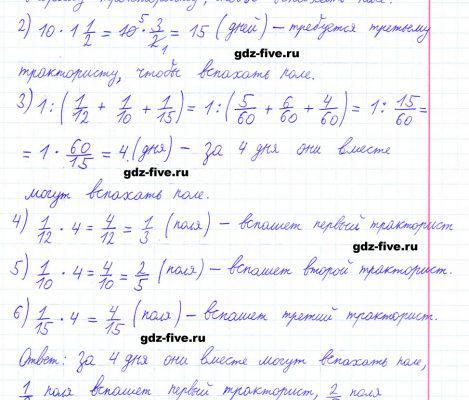 трактористу, чтобы вспахать поле.
2) 10 · 1 1/2 = 10⁵ · 3/2₁ = 15 (дней) – требуется третьему
gdz-five.ru
трактористу, чтобы вспахать поле.
3) 1 : (1/12 + 1/10 + 1/15) = 1 : (5/60 + 6/60 + 4/60) = 1 : 15/60 =
gdz-five.ru
= 1 · 60/15 = 4 (дня) – за 4 дня они вместе
gdz-five.ru
могут вспахать поле.
4) 1/12 · 4 = 4/12 = 1/3 (поля) – вспашет первый тракторист
gdz-five.ru
5) 1/10 · 4 = 4/10 = 2/5 (поля) – вспашет второй тракторист.
6) 1/15 · 4 = 4/15 (поля) – вспашет третий тракторист.
gdz-five.ru
Ответ: за 4 дня они вместе могут вспахать поле,
поля вспашет первый тракторист, 2 поля